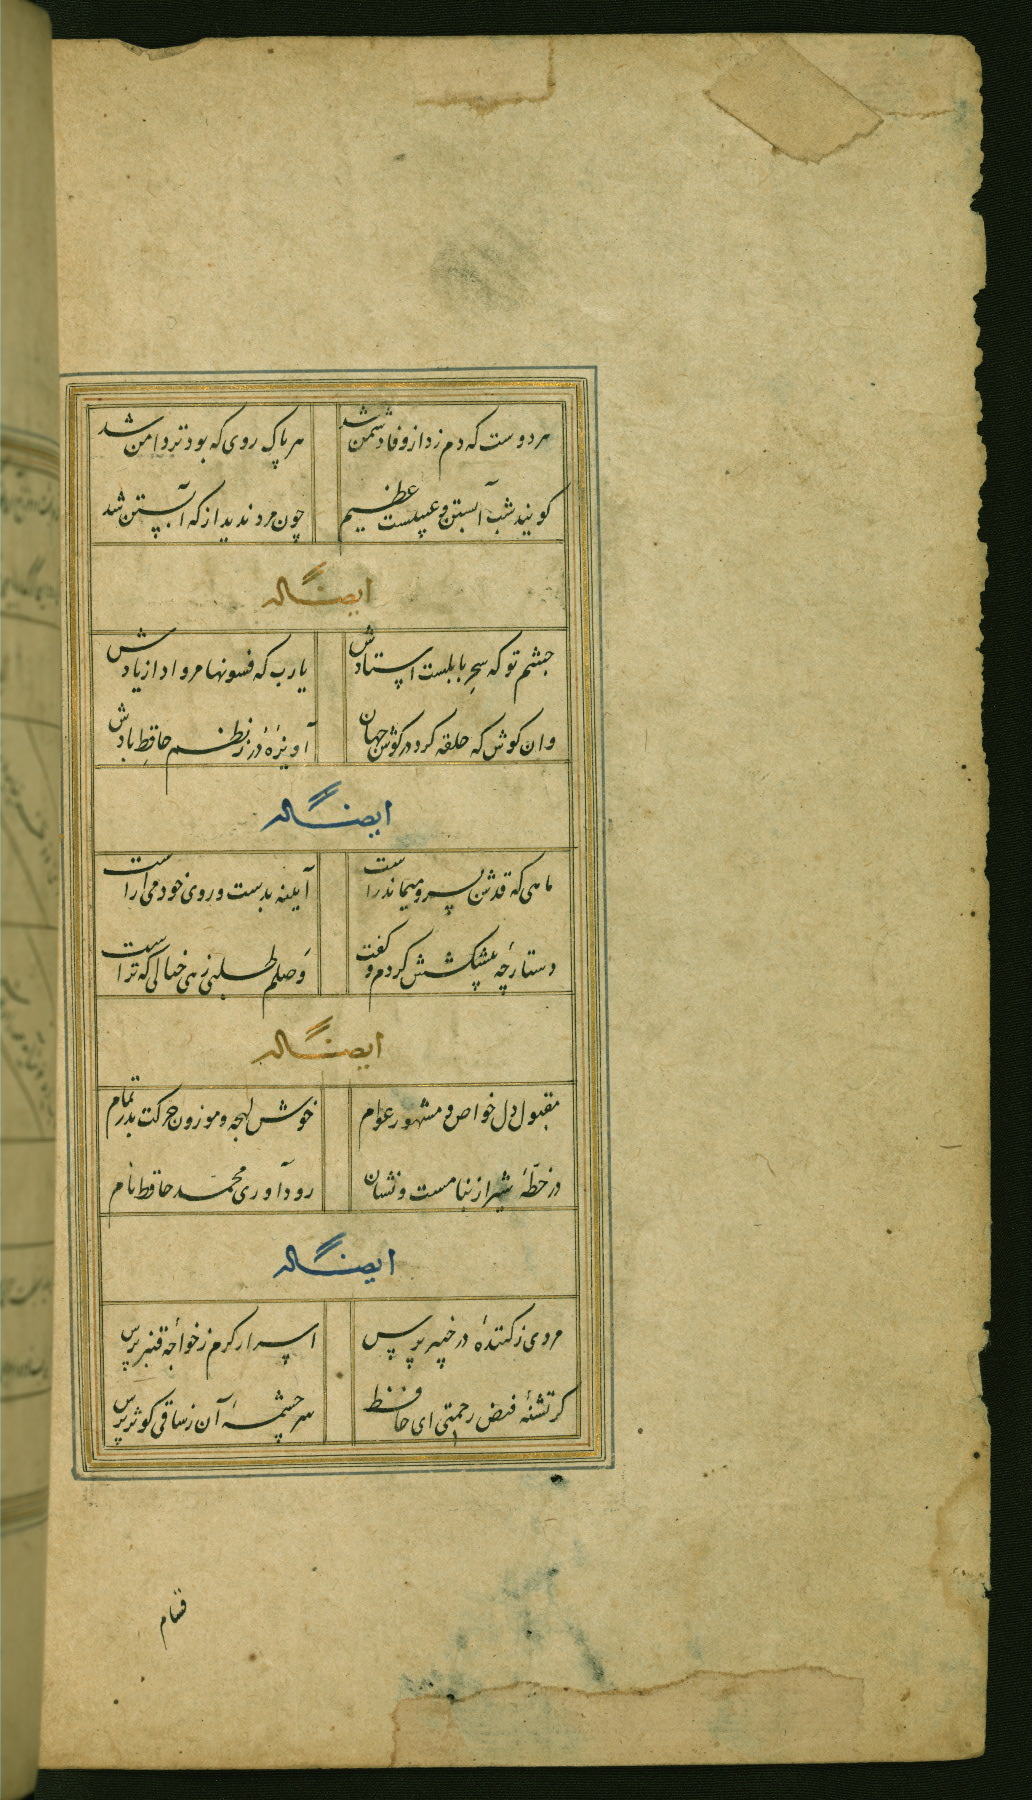 هر دوست که دم زد از وفا دشمن شد هر پاک روی که بود تردامن شد
کویند شب آبستن و عیبست عظیم چون مرد ندید از که آبستن شد
ایضا له
چشم تو که سحر بابلست استادش یا رب که فسونها مرواد از یادش
وان کوش که حلقه کرد در کوش جهان آویزهٔ در ز نظم حافظ بادش
ایضا له
ماهی که قدش بسرو میماند راست آیینه بدست و روی خود می آراست
دستارچهٔ پیشکشش کردم و کفت وصلم طلبی زهی خیالی که تراست
ایضا له
مقبول دل خواص و مشهور عوام خوش لهجه و موزون حرکت بدر تمام
در خطّهٔ شیراز بنامست و نشان رودآوری محمد حافظ نام
ایضا له
مردی ز کنندهٔ در خیبر پرس اسرار کرم ز خواجهٔ قنبر پرس
کر تشنهٔ فیض رحمتی ای حافظ سرچشمهٔ آن ز ساقی کوثر پرس